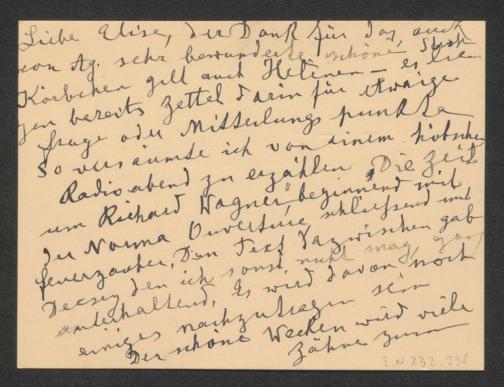 Liebe Elise, der Dank für das, auch
von Ag. sehr bewunderte schöne Stroh
Körbchen gilt auch Helenen – es lie-
gen bereits Zettel darin für etwaige
Frage oder Mitteilungspunkte
So versäumte ich von einem hübschen
Radioabend zu erzählen „Die Zeit
um Richard Wagner", beginnend mit
der Norma Ouverture schließend mit
Feuerzauber, Den Text dazwischen gab
Decsey den ich sonst nicht mag, ganz
unterhaltend. Es wird davon noch
einiges nachzutragen sein
Der schöne Wecken wird viele
Zähne zum
I.N. 232.938